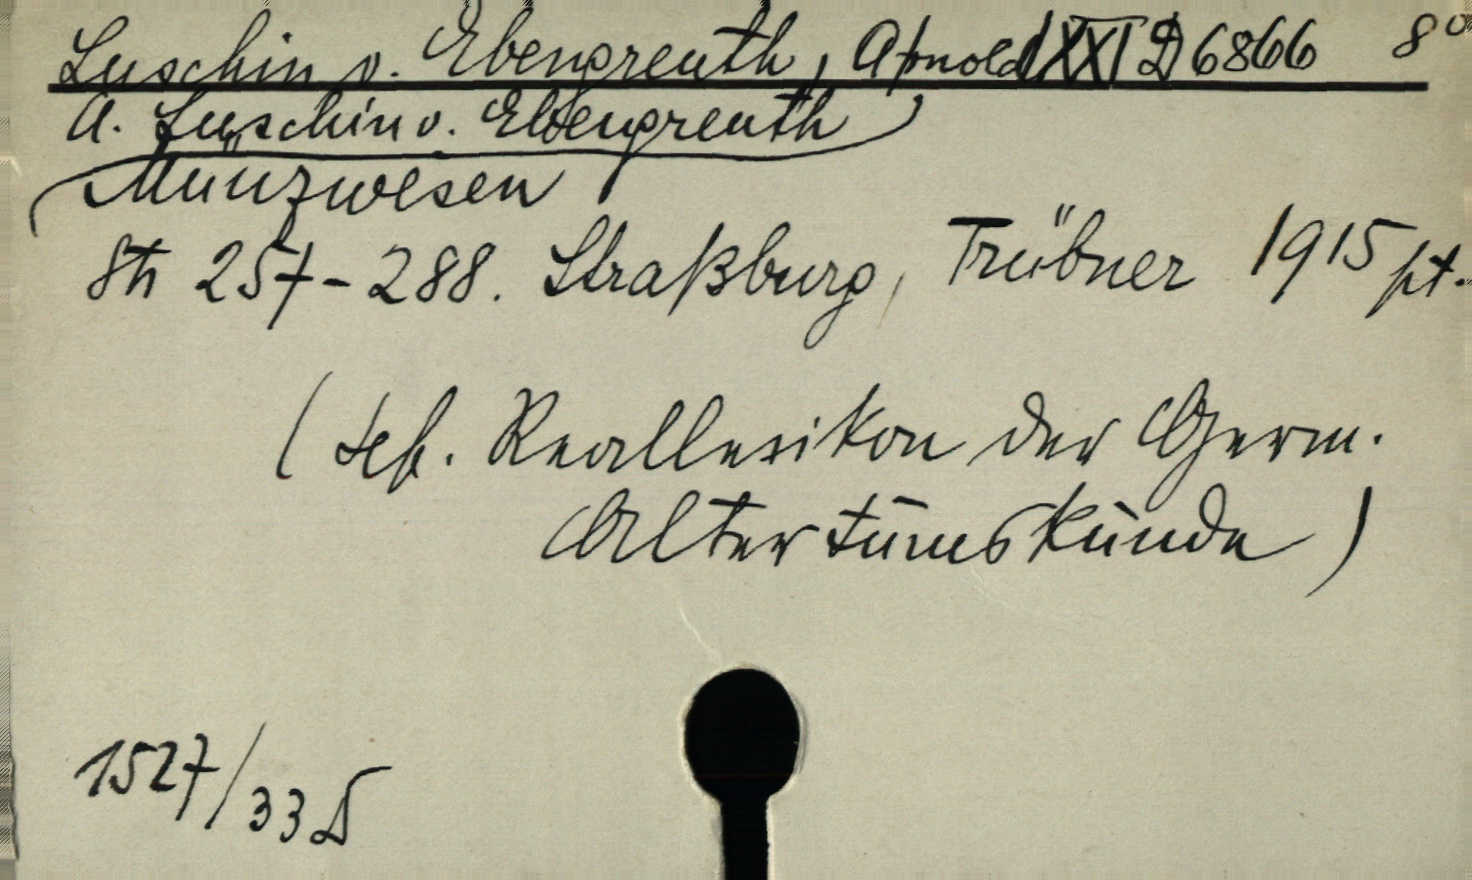 Luschin v. Ebengreuth, Arnold XXI D 6866 8°
A. Luschin v. Ebengreuth
Münzwesen
257-288. Straßburg, Trübner 1915
( Reallexikon der Germ.
Altertumskunde )
1527/33 D